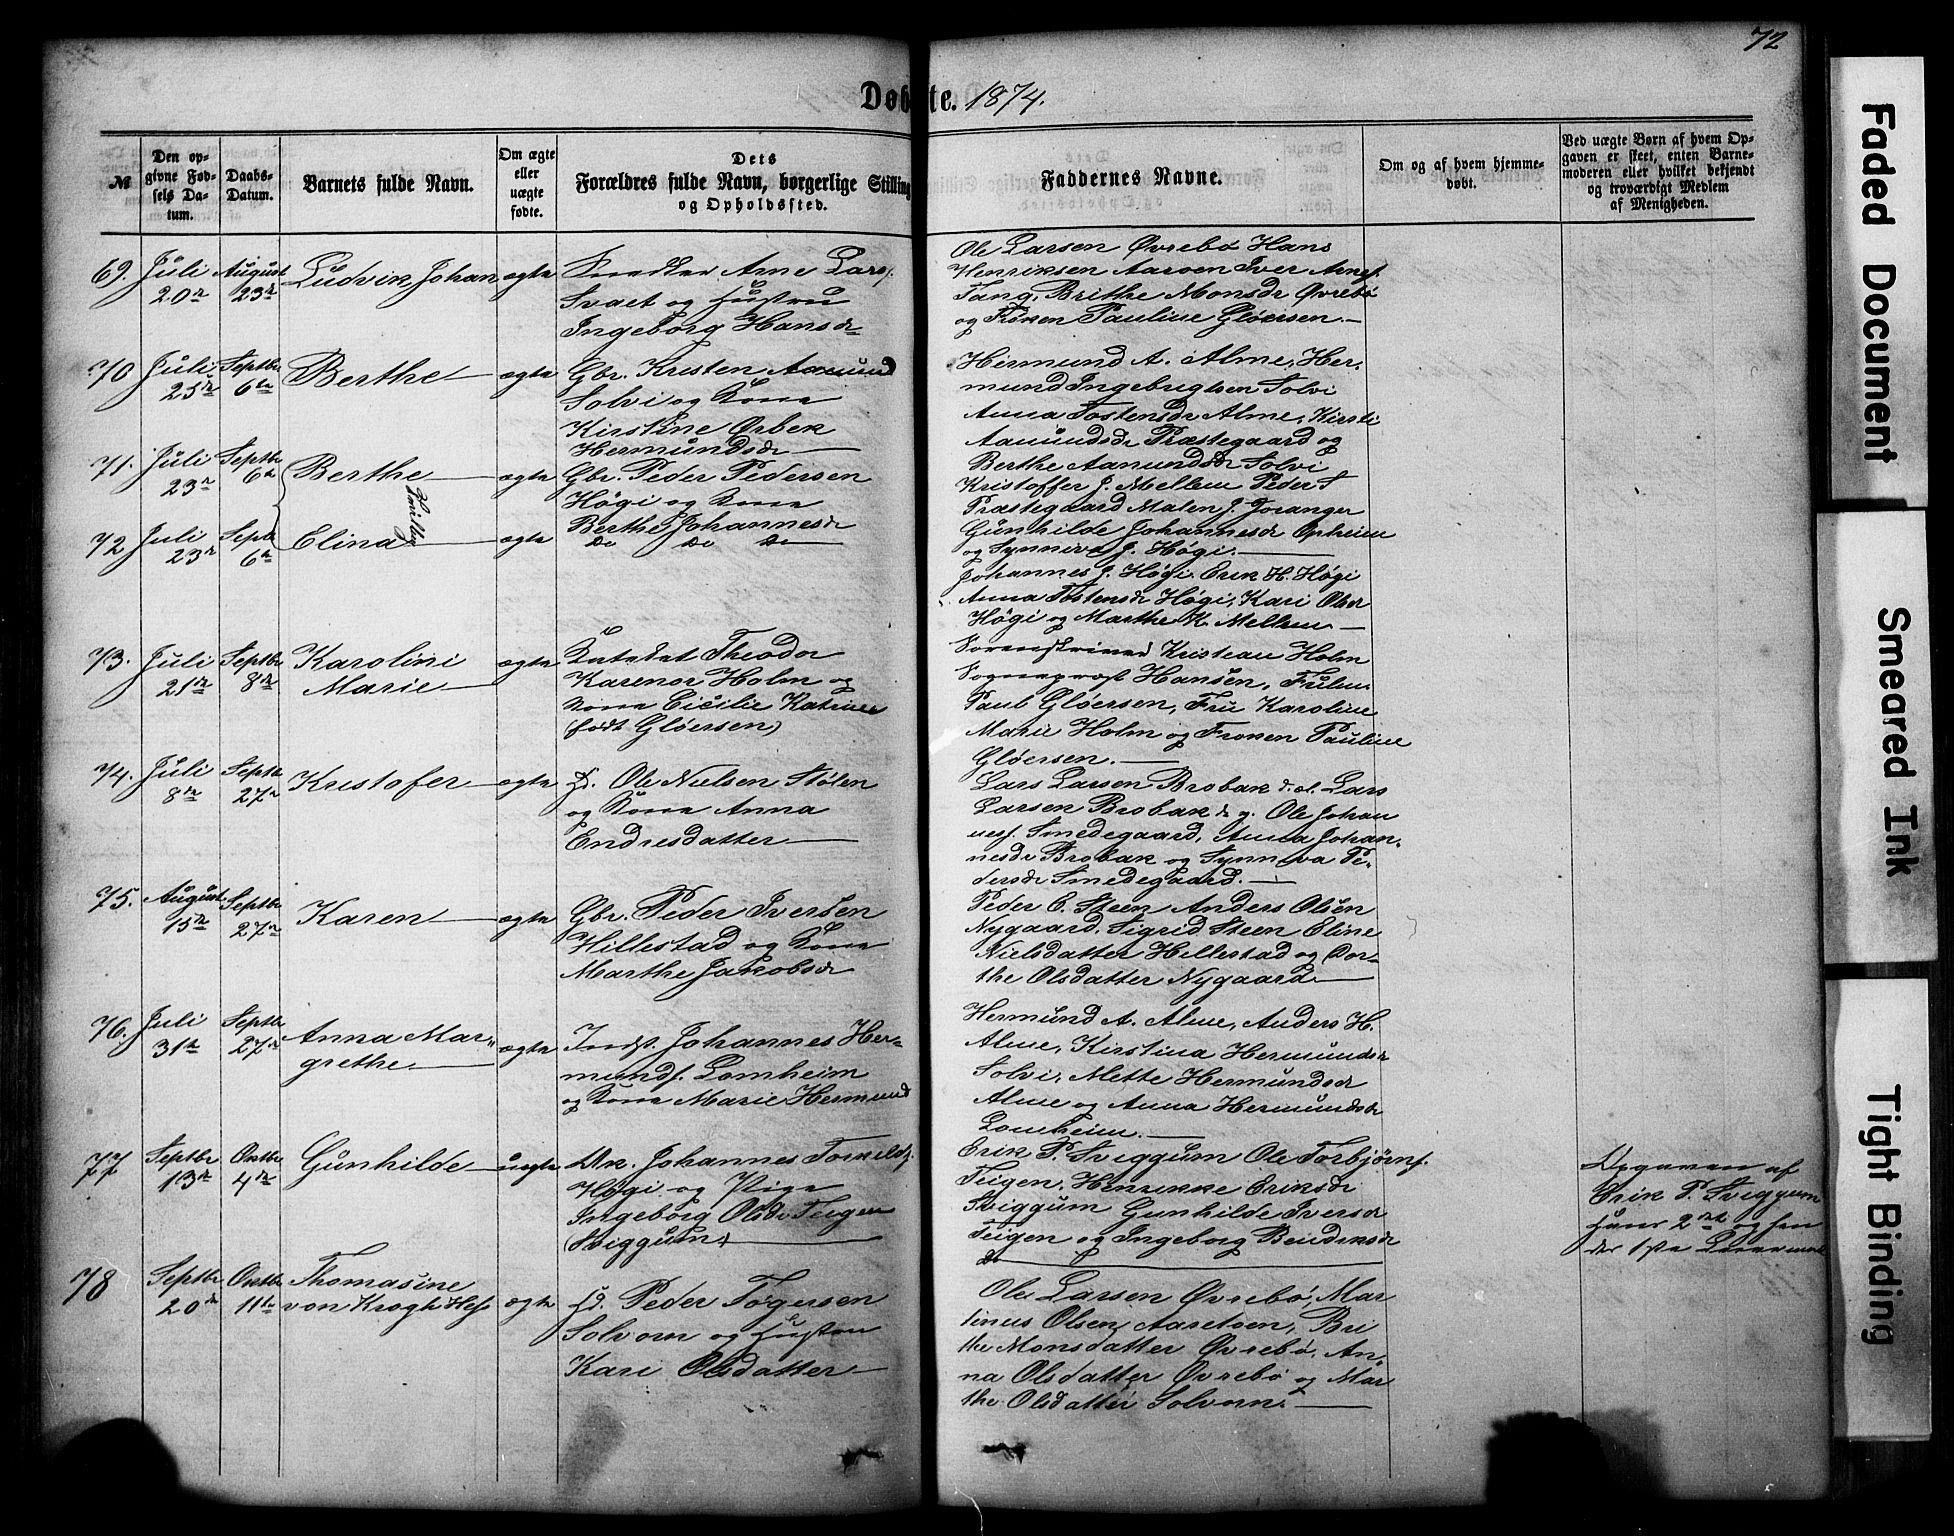 72
Døbte. 1874.
№
Den opgivne Fødsels Datum.
Daabs-Datum.
Barnets fulde Navn.
Om ægte eller uægte fødte.
Dets Forældres fulde Navn, borgerlige Stilling og Opholdssted.
Faddernes Navne.
Om og af hvem hjemmedøbt.
Ved uægte Børn af hvem Opgaven er skeet, enten Barnemoderen eller hvilket bekjendt og troværdigt Medlem af Menigheden.
69. Juli 20de August 23de Ludvik Johan ægte
Arne Lars.
Svaet og Hustru
Ingeborg Hansdr
Ole Larsen Øvrebø Hans
Henriksen Aaroen Iver Arnes.
Tang, Brithe Monsdr Øvrebø
og Frøken Pauline Gløersen.
70 Juli 25de Septbr 6te Berthe ægte
Gbr. Kristen Aamund
Solvi og Kone
Kirstine Ørbek
Hermundsdr
Hermund A. Alme, Her-
mund Ingebrigtsen Solvi
Anna Tostensdr Alme, Kirsti
Aamundsdr Præstegaard og
Berthe Aamundsdr Solvi
71. Juli 23de Septbr 6te Berthe ægte
Tvilling
Gbr. Peder Pedersen
Høgi og Kone
Berthe Johannesdr
Kristoffer J. Mellem Peder T
Præstegaard Malen J. Joranger
Gunhilde Johannesdr Opheim
og Synneve J. Høgi.
72 Juli 23de Septb 6te Elina ægte
Do Do Do
Johannes J. Høgi Erik H. Høgi
Anna Tostensdr Høgi, Kari Olsdr
Høgi og Marthe K. Mellem
73. Juli 21de Septbr 8de Karolini Marie ægte
Kateket Theodor
Karenor Holm og
Kone Cicilie Katrine
(født Gløersen)
Sorenskriver Kristean Holm
Sogneprest Hansen,
Paul Gløersen, Fru Karoline
Marie Holm og Frøken Pauline
Gløersen.
74. Juli 8de Septb 27de Kristofer ægte
Hd. Ole Nielsen Stølen
og Kone Anna
Endresdatter
Lars Larsen Brobak d. æl. Lars
Larsen Brobak d. y. Ole Johan
nes. Smedegaard, Anna Johan-
nesdr Brobak og Synneva Pe-
dersdr Smedegaard.
75. August 15de Septbr 27de Karen ægte
Gbr. Peder Iversen
Hillestad og Kone
Marthe Jakobsdr
Peder E. Steen Anders Olsen
Nygaard. Sigrid Steen Eline
Nielsdatter Hellestad og Dor-
the Olsdatter Nygaard
76. Juli 31te Septbr 27de Anna Mar-
grethe ægte
Indst. Johannes Her-
munds. Lomheim
og Kone Marie Hermund
Hermund A. Alme, Anders H.
Alme, Kirstina Hermundsdr
Solvi, Mette Hermundsdr
Alme og Anna Hermundsdr
Lomheim.
77 Septbr 13de Oktbr 4de Gunhilde uægte
Uk. Johannes Torkelds.
Høgi og Pige
Ingeborg Olsdr Teigen
(Sviggum)
Erik P. Sviggum Ole Torbjørns.
Teigen. Henrikke Eriksdr
Sviggum Gunhilde Iversdr
Teigen og Ingeborg Bendiksdr
do
Opgaven af
Erik P. Sviggum
Hans 2det og hen
des 1ste Leiermaal
78 Septbr 20de Oktbr 11te Thomasine
von Krogh Hess ægte
Hd. Peder Tøgersen
Solvorn og Hustru
Kari Olsdatter
Ole Larsen Øvrebø, Mar
tinus Olsen Aaretoen, Bri
the Monsdatter Øvrebø. An-
na Olsdatter Øvrebø og Mar
the Olsdatter Solvorn.
Faded Document
Smeared Ink
Tight Binding